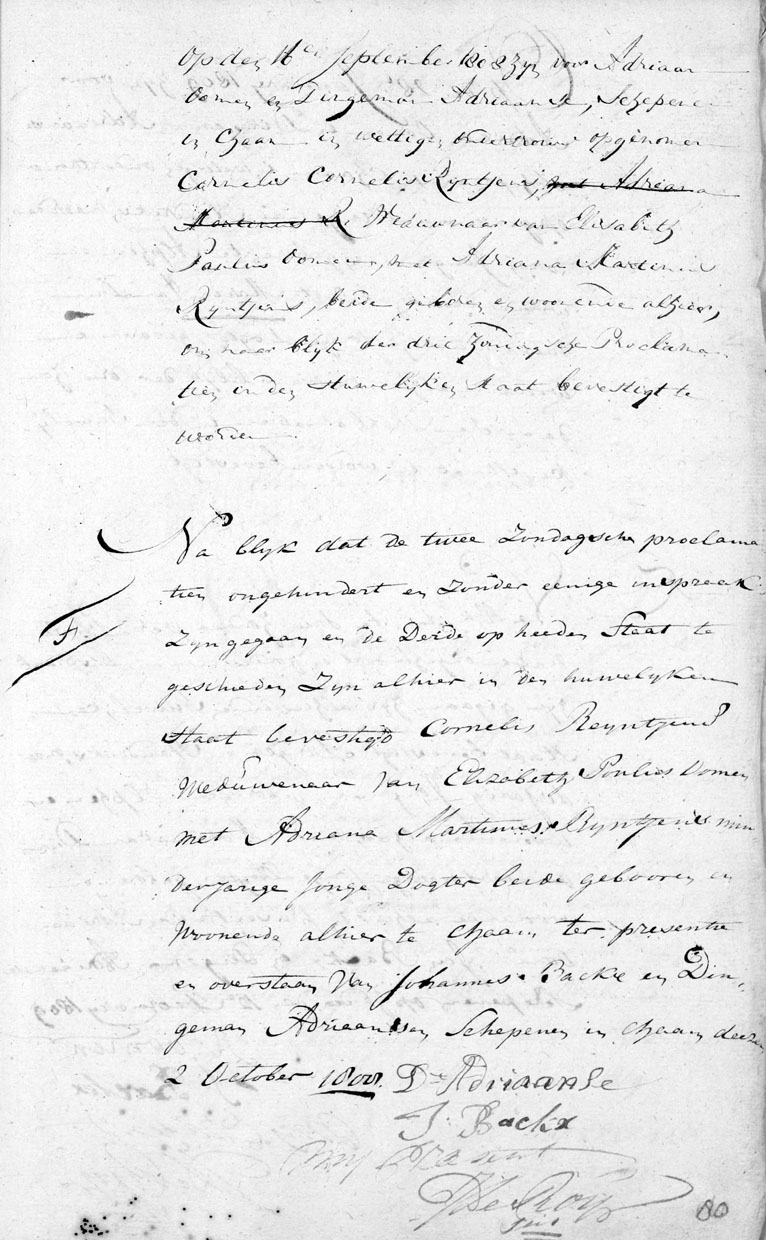 Op den 16en September 1808 zijn voor Adriaan
Oomen en Dingeman Adriaanse, Schepenen
in Chaam in wettigen ondertrouw opgenomen
Cornelis Cornelis Ryntjens, met Adriana
Martinus R Weduwnaar van Elisabeth
Paulus Oomen, met Adriana Martinus
Ryntjens, beide geboren en woonende alhier,
om naar blyk der drie Zondagsche Proclama-
tien in den Huwelyken staat bevestigt te
worden
Na blyk dat de twee Zondagsche proclama
tien ongehindert en zonder eenige inspraak
F
Zyn gegaan en de Derde op heeden Staat te
geschieden Zyn alhier in den huwelyken
Staat bevestigd Cornelis Reyntjens
Weduwenaar Van Elizabeth Poulus Oomen
met Adriana Martinus Ryntjens min
derjarige Jonge Dogter beide gebooren en
Woonende alhier te Chaam ter presentie
en overstaan Van Johannes Backx en Din-
geman Adriaansen Schepenen in Chaam deezen
2 October 1808. D. Adriaanse
J. Backx
mij present
80